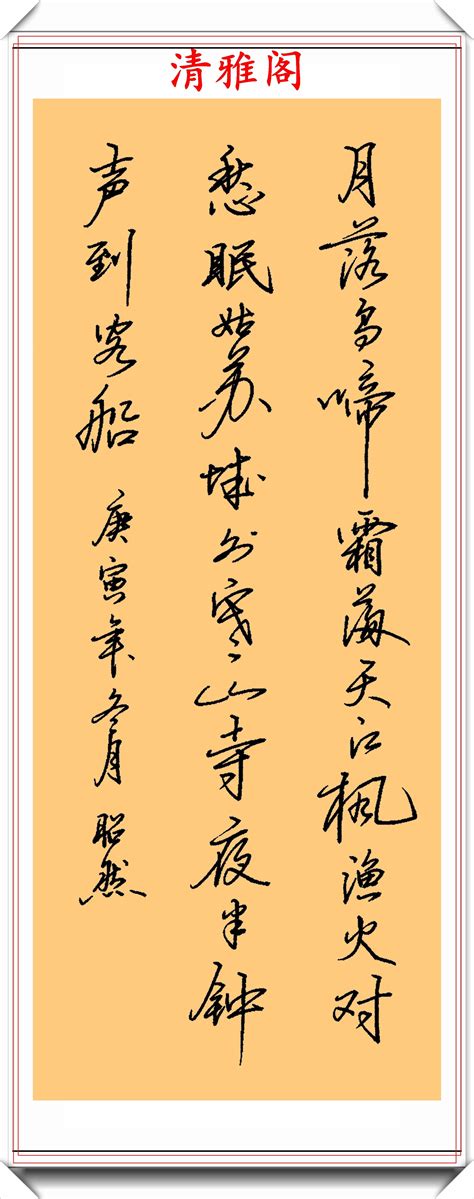 清雅阁
月落乌啼霜满天江枫渔火对
愁眠姑苏城外寒山寺夜半钟
声到客船 庚寅年冬月 昭然